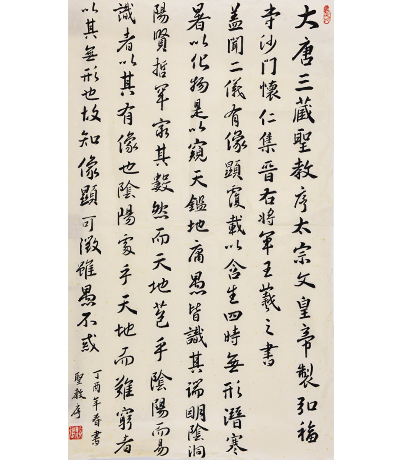 大唐三藏聖教序太宗文皇帝製弘福
寺沙門懷仁集晉右將軍王羲之書
蓋聞二儀有像顯覆載以含生四時無形潛寒
暑以化物是以窺天鑑地庸愚皆識其端明陰洞
陽賢哲罕窮其數然而天地苞乎陰陽而易
識者以其有像也陰陽處乎天地而難窮者
以其無形也故知像顯可徵雖愚不惑
丁酉年春書
聖教序